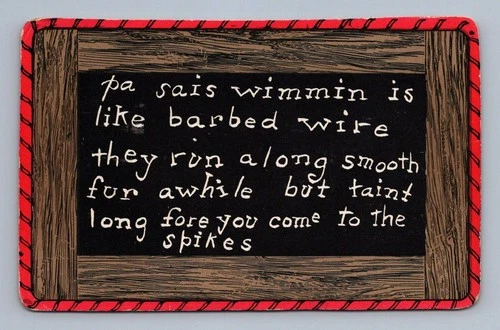 pa sais wimmin is
like barbed wire
they run along smooth
fur awhile but taint
long fore you come to the
spikes